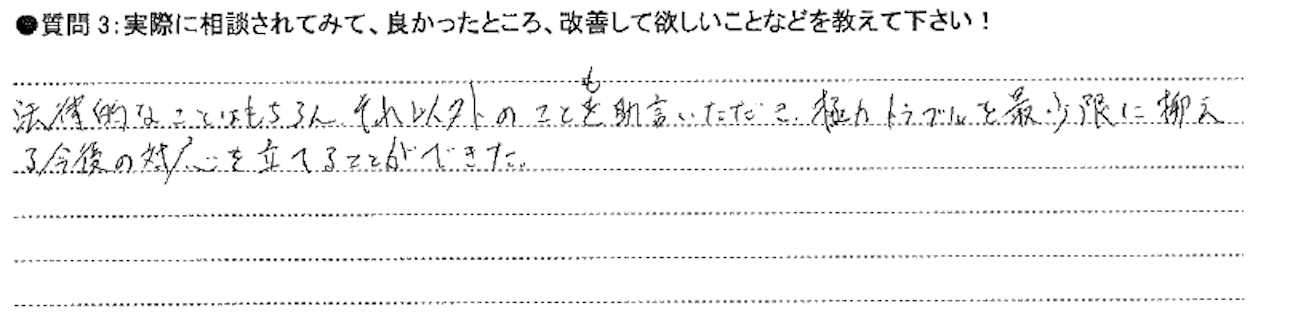 ●質問3:実際に相談されてみて、良かったところ、改善して欲しいことなどを教えて下さい!
法律的なことはもちろん、それ以外のことも助言いただき、極力トラブルを最少限に抑え
る今後の対応を立てることができた。